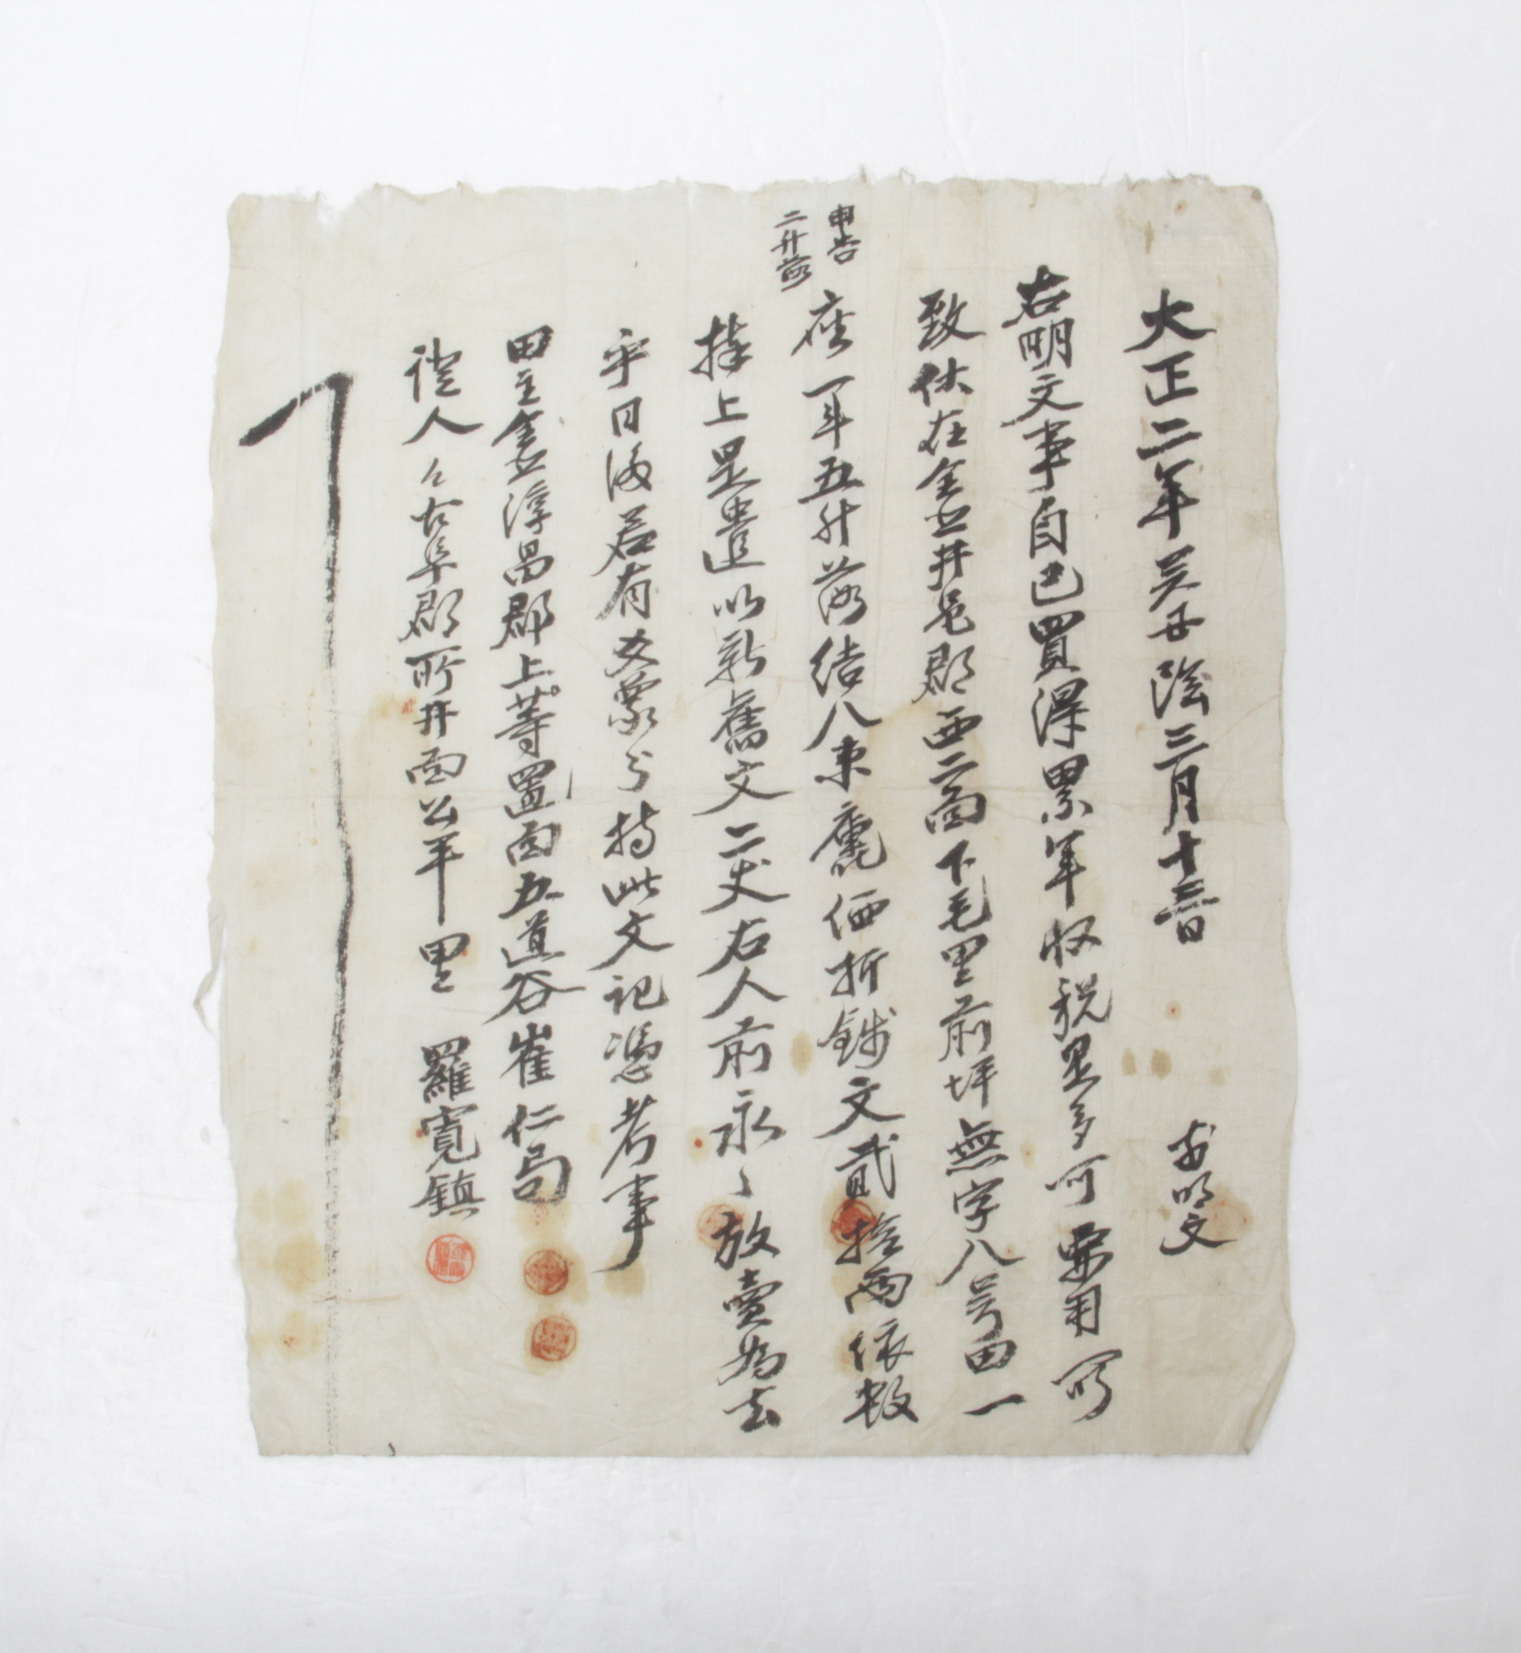 大正二年癸丑陰三月十三日 前明文
右明文事自己買得累年收税是多可要用所
致伏在全北井邑郡西二面下毛里前坪無字八号田一
座一斗五升落結八束廤価折錢文貳拾兩依數
申告
二升落
捧上是遣以新舊文二丈右人前永〻放賣為去
乎日後若有爻象則持此文記憑考事
田主全北淳昌郡上等置面五道谷崔仁局
證人仝古阜郡所井面公平里 羅寬鎮